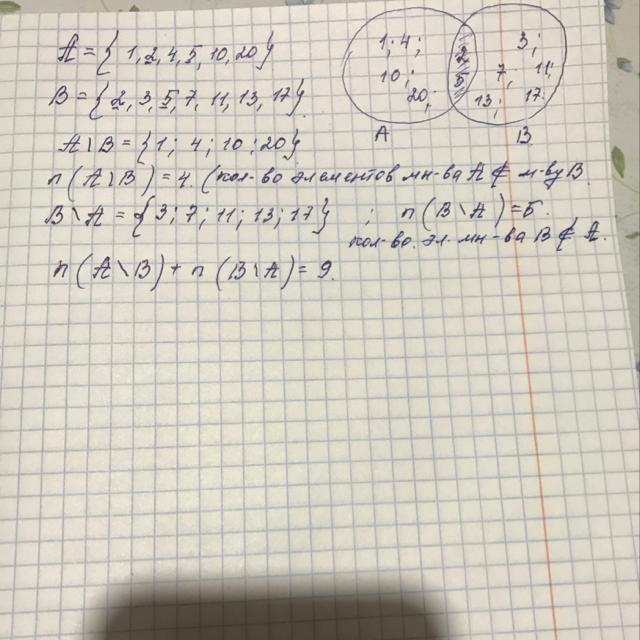 A = { 1, 2, 4, 5, 10, 20 }
B = { 2, 3, 5, 7, 11, 13, 17 }
A \ B = { 1; 4; 10; 20 }
n (A \ B) = 4. (кол-во элементов мн-ва A ∉ м-ву B.
B \ A = { 3; 7; 11; 13; 17 } ; n (B \ A) = 5.
кол-во. эл. мн-ва B ∉ A.
n (A \ B) + n (B \ A) = 9.
1; 4; 2 3;
10; 5 7, 11;
20; 13; 17.
A B.